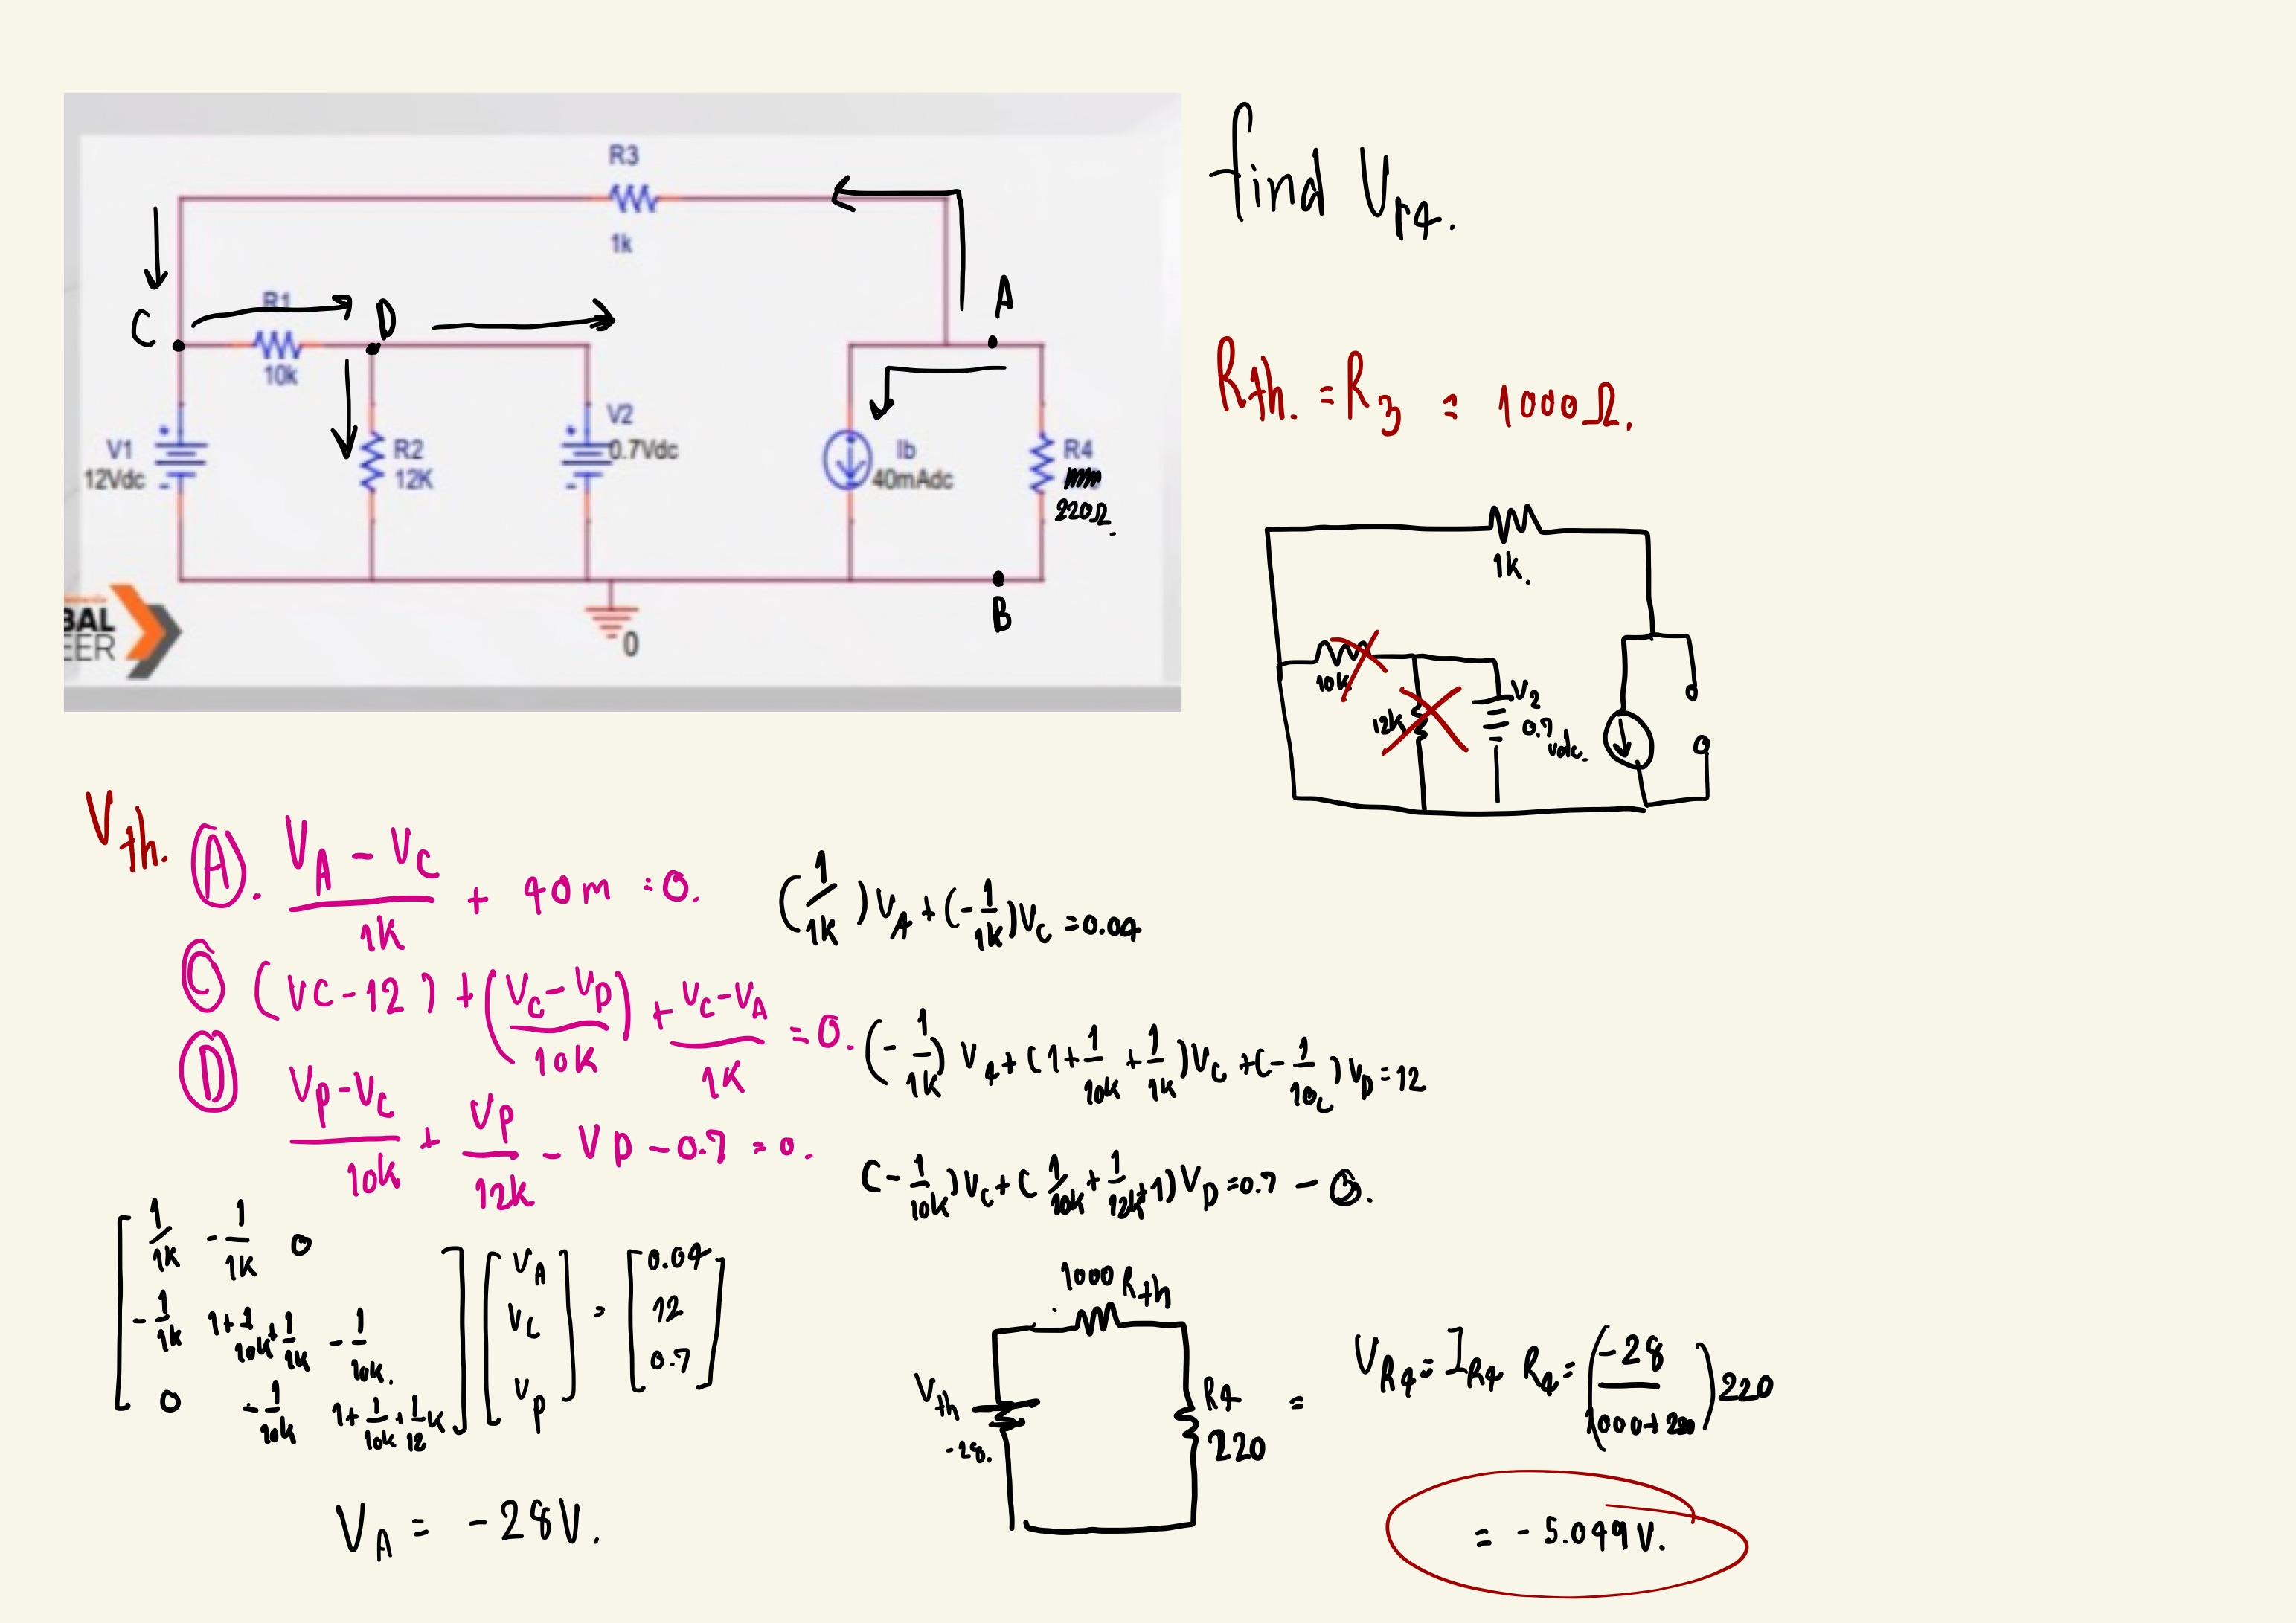 find Vr4.
R3
1k
C
R1
10k
D
A
V1
12Vdc
R2
12K
V2
0.7Vdc
Ib
40mAdc
R4
220Ω.
B
0
BAL
EER
Rth. = R3 = 1000Ω.
1k.
10k
12k
V2
0.7
volc.
Vth.
Ⓐ. (VA - VC)/1k + 40m = 0.
(1/1k)VA + (-1/1k)VC = 0.04
Ⓒ (VC - 12) + ((VC - VD)/10k) + (VC - VA)/1k = 0.
(-1/1k)VA + (1 + 1/10k + 1/1k)VC + (-1/10k)VD = 12
Ⓓ (VD - VC)/10k + VD/12k - VD - 0.7 = 0.
(-1/10k)VC + (1/10k + 1/12k + 1)VD = 0.7 - ③.
[1/1k -1/1k 0] [VA] [0.04]
[-1/1k 1+1/10k+1/1k -1/10k.] [VC] = [12]
[0 -1/10k 1+1/10k+1/12k] [VD] [0.7]
VA = -28V.
1000 Rth
Vth
-28.
R4
220
= VR4 = IR4 R4 = (-28/(1000+220))220
= -5.049V.